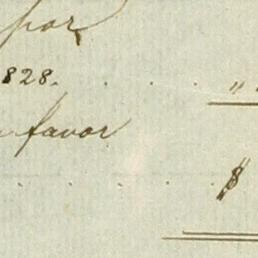 por
828. . . . "
favor
. . . $